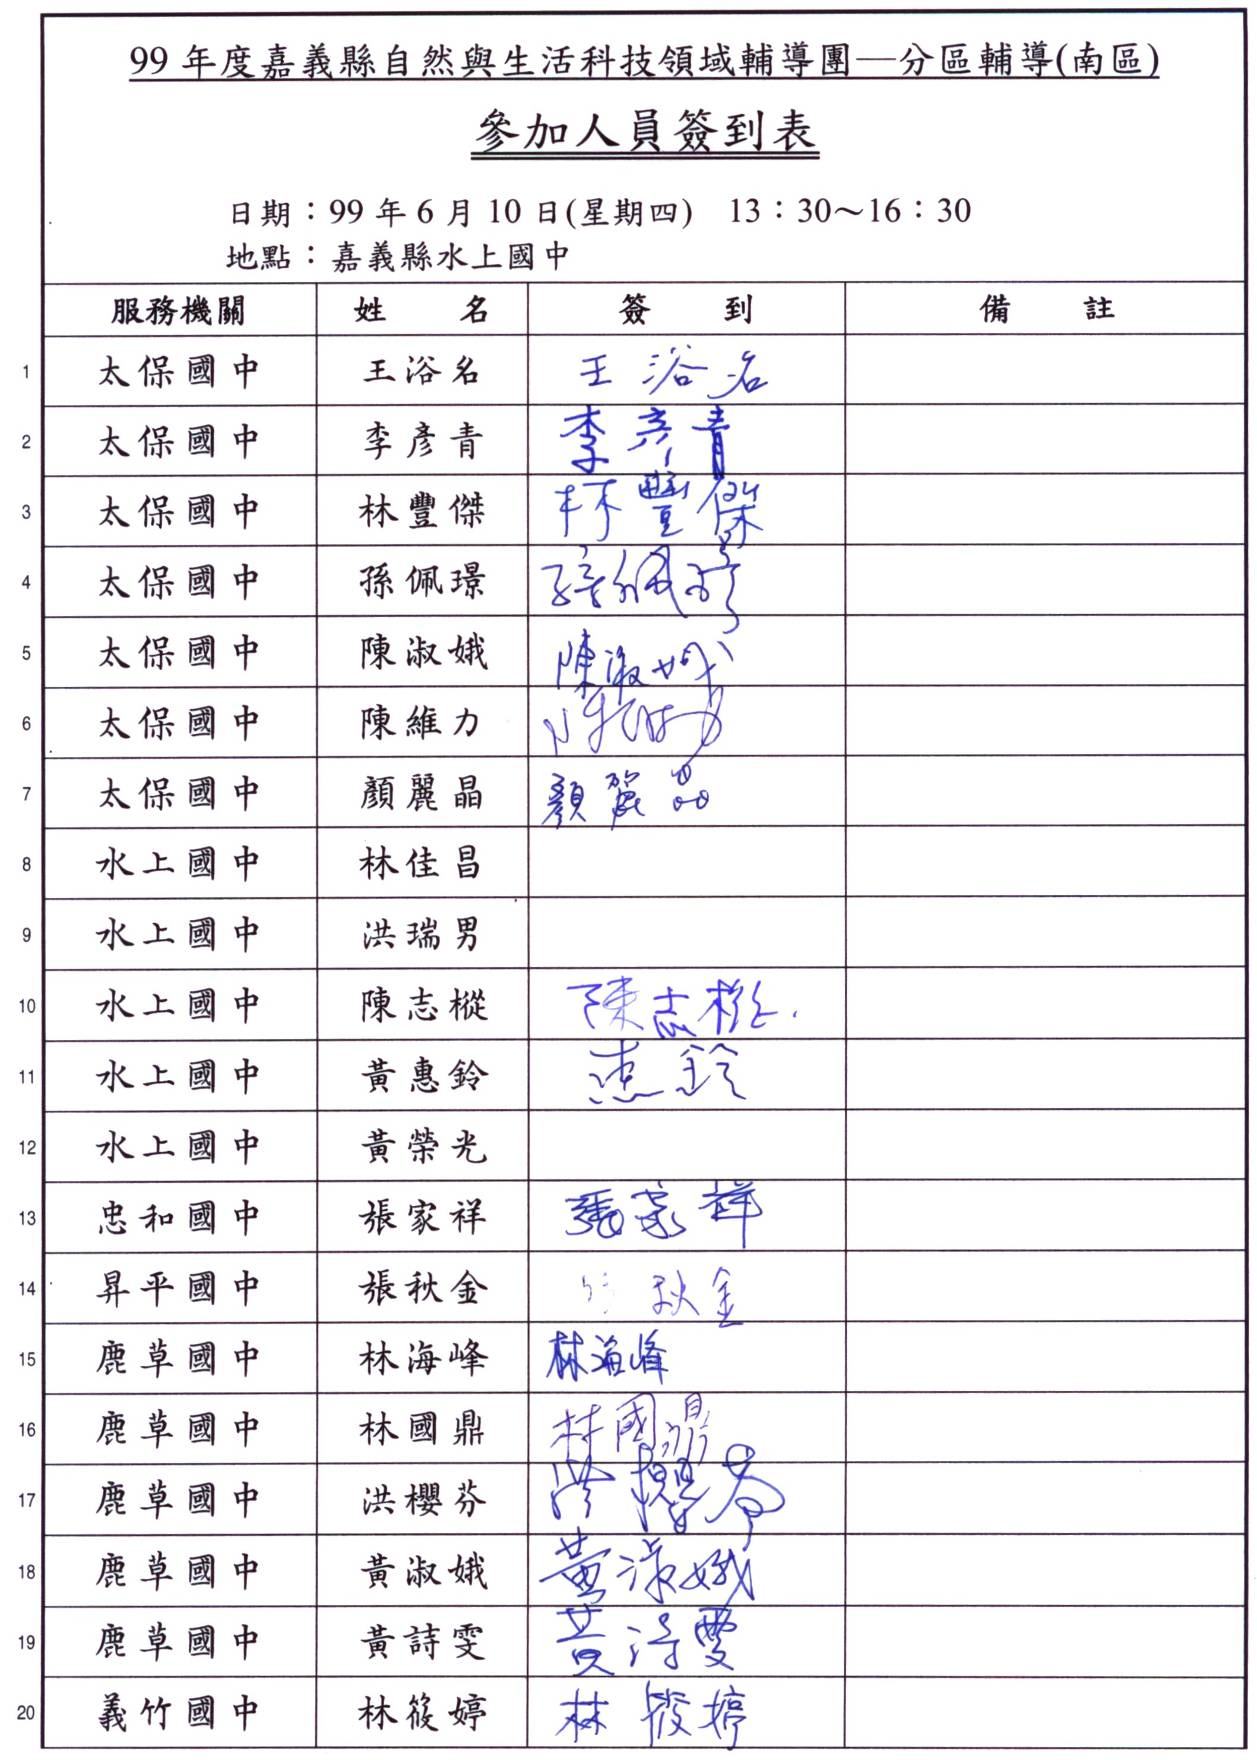 99 年度嘉義縣自然與生活科技領域輔導團—分區輔導(南區)
參加人員簽到表
日期：99 年 6 月 10 日(星期四) 13：30～16：30
地點：嘉義縣水上國中
服務機關 姓 名 簽 到 備 註
1 太保國中 王浴名 王浴名
2 太保國中 李彥青 李彥青
3 太保國中 林豐傑 林豐傑
4 太保國中 孫佩璟 孫佩璟
5 太保國中 陳淑娥 陳淑娥
6 太保國中 陳維力 陳維力
7 太保國中 顏麗晶 顏麗晶
8 水上國中 林佳昌
9 水上國中 洪瑞男
10 水上國中 陳志樅 陳志樅
11 水上國中 黃惠鈴 惠鈴
12 水上國中 黃榮光
13 忠和國中 張家祥 張家祥
14 昇平國中 張秋金 秋金
15 鹿草國中 林海峰 林海峰
16 鹿草國中 林國鼎 林國鼎
17 鹿草國中 洪櫻芬 洪櫻芬
18 鹿草國中 黃淑娥 黃淑娥
19 鹿草國中 黃詩雯 黃詩雯
20 義竹國中 林筱婷 林筱婷